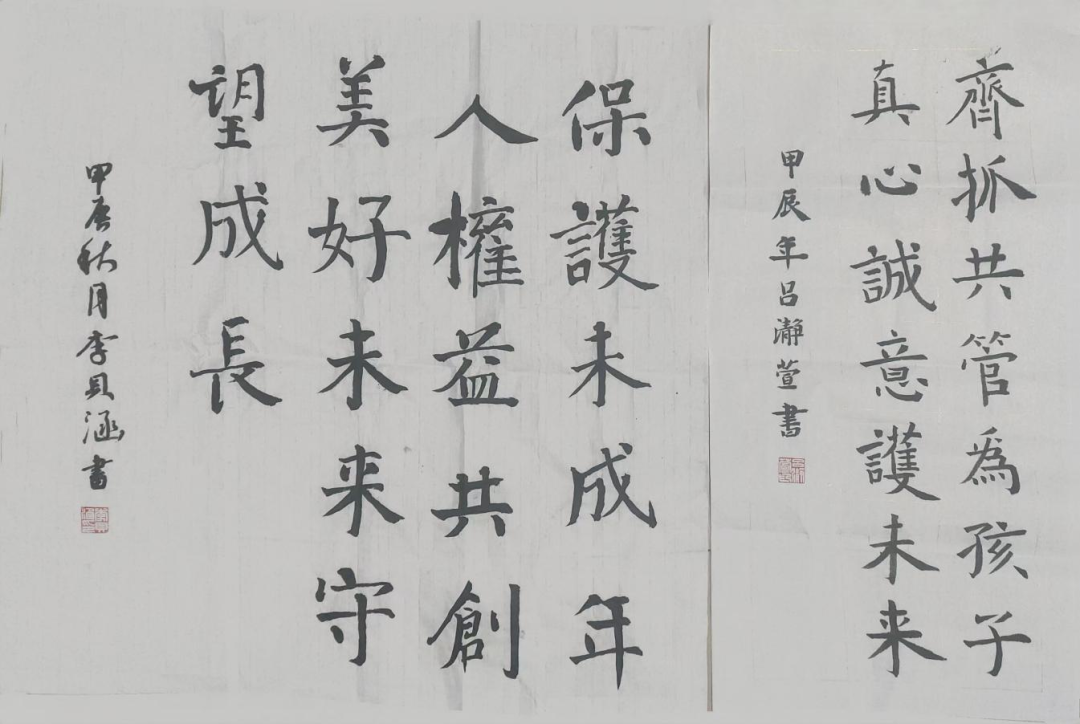 齊抓共管為孩子
真心誠意護未来
甲辰年吕瀞萱書
保護未成年
人權益共創
美好未来守
望成長
甲辰秋月李貝涵書